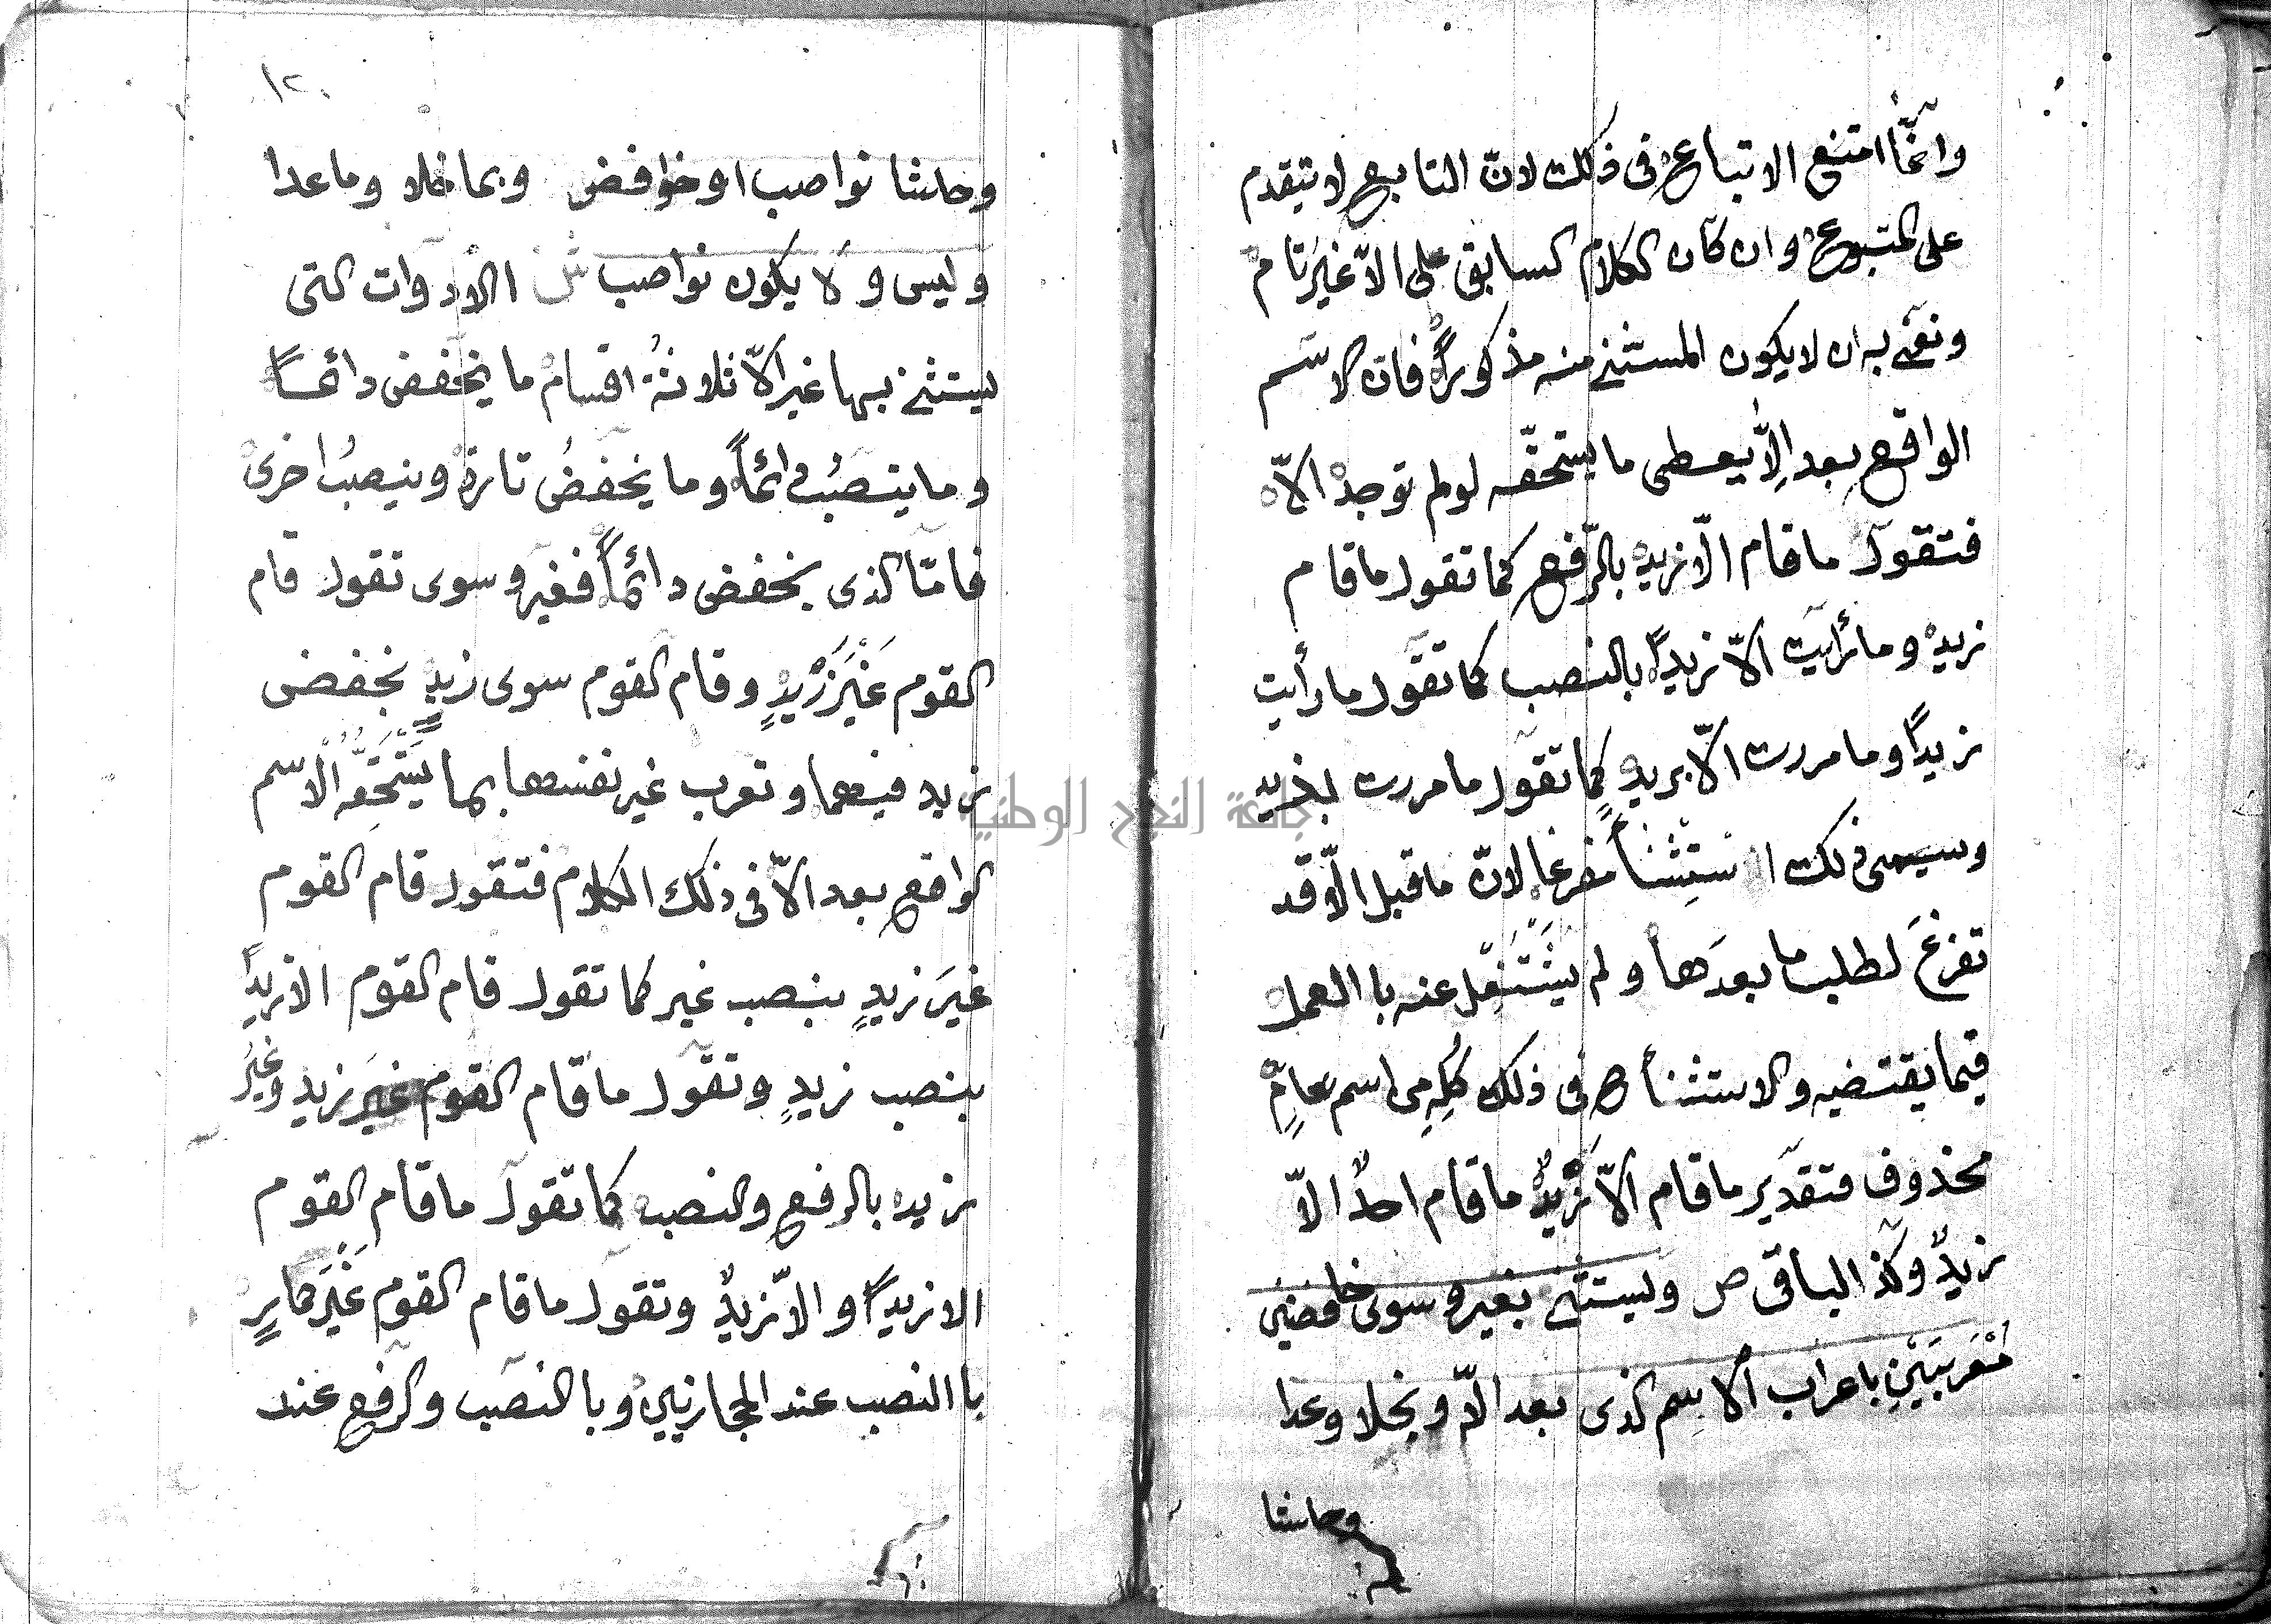 وانمّا امتنع الاتباع فى ذلك لانّ التابع لا يتقدم
على المتبوع وان كان الكلام السابق على الاّ غير تام
ونعنى به ان لا يكون المستثنى منه مذكوراً فان الاسم
الواقع بعد الاّ يعطى ما يستحقّه لو لم توجد الاّ
فتقول ما قام الاّ زيد بالرّفع كما تقول ما قام
زيد وما رأيت الاّ زيداً بالنصب كما تقول ما رأيت
زيداً وما مررت الاّ بزيد كما تقول ما مررت بزيد
وسيمى ذلك استثنأ مفرغا لانّ ما قبل الاّ قد
تفرغَ لطلب ما بعدَها ولم يشتغل عنه با العمل
فيما يقتضيه والاستثنأ فى ذلك كله من اسم عامٍّ
محذوف فتقدير ما قام الاّ زيدٌ ما قام احدٌ الاّ
زيدٌ وكذ الباقى ص ويستثنى بغير وسوى خافضين
مُعْربَيْنِ باعراب الاسم الذى بعد الاّ وبخلا وعدا
وحاشا
١٢
وحاشا نواصب او خوافض وبما خلا وما عدا
وليس ولا يكون نواصب ش الادوات التى
يستثنى بها غير الاّ ثلاثة اقسام ما يخفض دائماً
وما ينصبُ دائماً وما يخفضُ تارة وينصبُ اخرى
فامّا الذى يخفض دائماً فغير وسوى تقول قام
القوم غَيْرَ زَيْدٍ وقام القوم سوى زيدٍ بخفض
زيد فيهما وتعرب غير نفسها بما يَسْتَحِقُّه الاسم
الواقع بعد الاّ فى ذلك الكلام فتقول قام القوم
غيرَ زيدٍ بنصب غير كما تقول قام القوم الا زيداً
بنصب زيدٍ وتقول ما قام القوم غيرَ زيد وغيرُ
زيد بالرفع والنصب كما تقول ما قام القوم
الا زيداً والاّ زيدٌ وتقول ما قام القوم غَيْرَ حمارٍ
با النصب عند الحجازيين وبا النصب والرفع عند
جامعة النجاح الوطنية